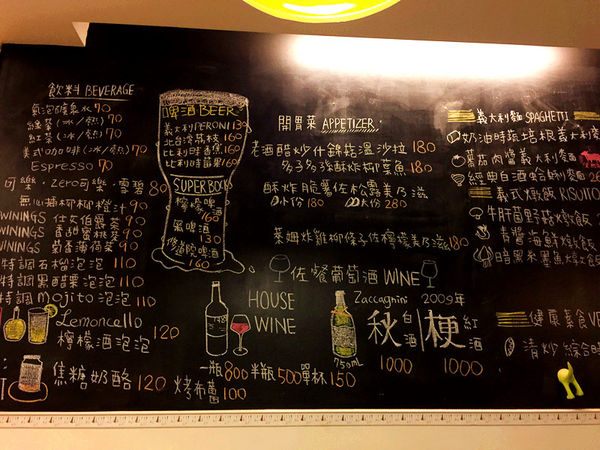 飲料 BEVERAGE
氣泡礦泉水 70
綠茶(冰/熱) 70
紅茶(冰/熱) 70
美式咖啡(冰/熱) 70
Espresso 70
可樂・zero可樂・雪碧 80
無心插柳柳橙汁 90
WININGS 仕女伯爵茶 90
WININGS 香甜蜜桃茶 90
WININGS 葡萄薄荷茶 90
特調石榴泡泡 110
特調黑醋栗泡泡 110
特調mojito泡泡 110
Lemoncello
檸檬酒泡泡 120
焦糖奶酪 120
烤布蕾 100
啤酒 BEER
義大利PERONI 130
北台灣荔枝 160
比利時香蕉 160
比利時蘋果 160
SUPER BOCK
檸檬啤 160
黑啤酒 130
修道院啤酒 160
開胃菜 APPETIZER:
老酒醋炒什錦菇溫沙拉 180
多子多孫酥炸柳葉魚 180
酥炸脆薯佐松露美乃滋
小份 180 大份 280
萊姆炸雞柳條子佐檸檬美乃滋 180
佐餐葡萄酒 WINE
HOUSE WINE
一瓶 800 半瓶 500 單杯 150
Zaccagnini 2009年
750ml
秋 白酒 1000
梗 紅酒 1000
義大利麵 SPAGHETTI
奶油時蔬培根義大利
蕃茄肉醬義大利麵
經典白酒蛤蜊
義式燉飯 RISOTTO
牛肝菌野菇燉飯
青醬海鮮燉飯
暗黑米墨魚燉飯
健康素食 VE
清炒綜合時